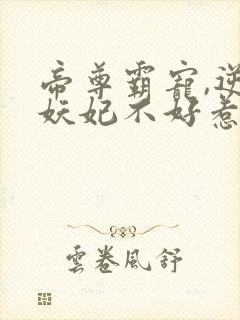 帝尊霸寵,逆
妖妃不好惹
雲卷風舒